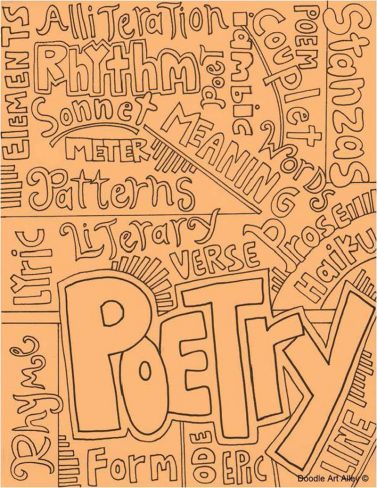 ELEMENTS
Alliteration
Rhythm
Poet
iambic
Couplet
POEM
Stanzas
Sonnet
METER
MEANING
Words
Patterns
LYRIC
Literary
VERSE
Prose
Haiku
POETRY
Rhyme
Form
ODE
EPIC
LINE
Doodle Art Alley ©